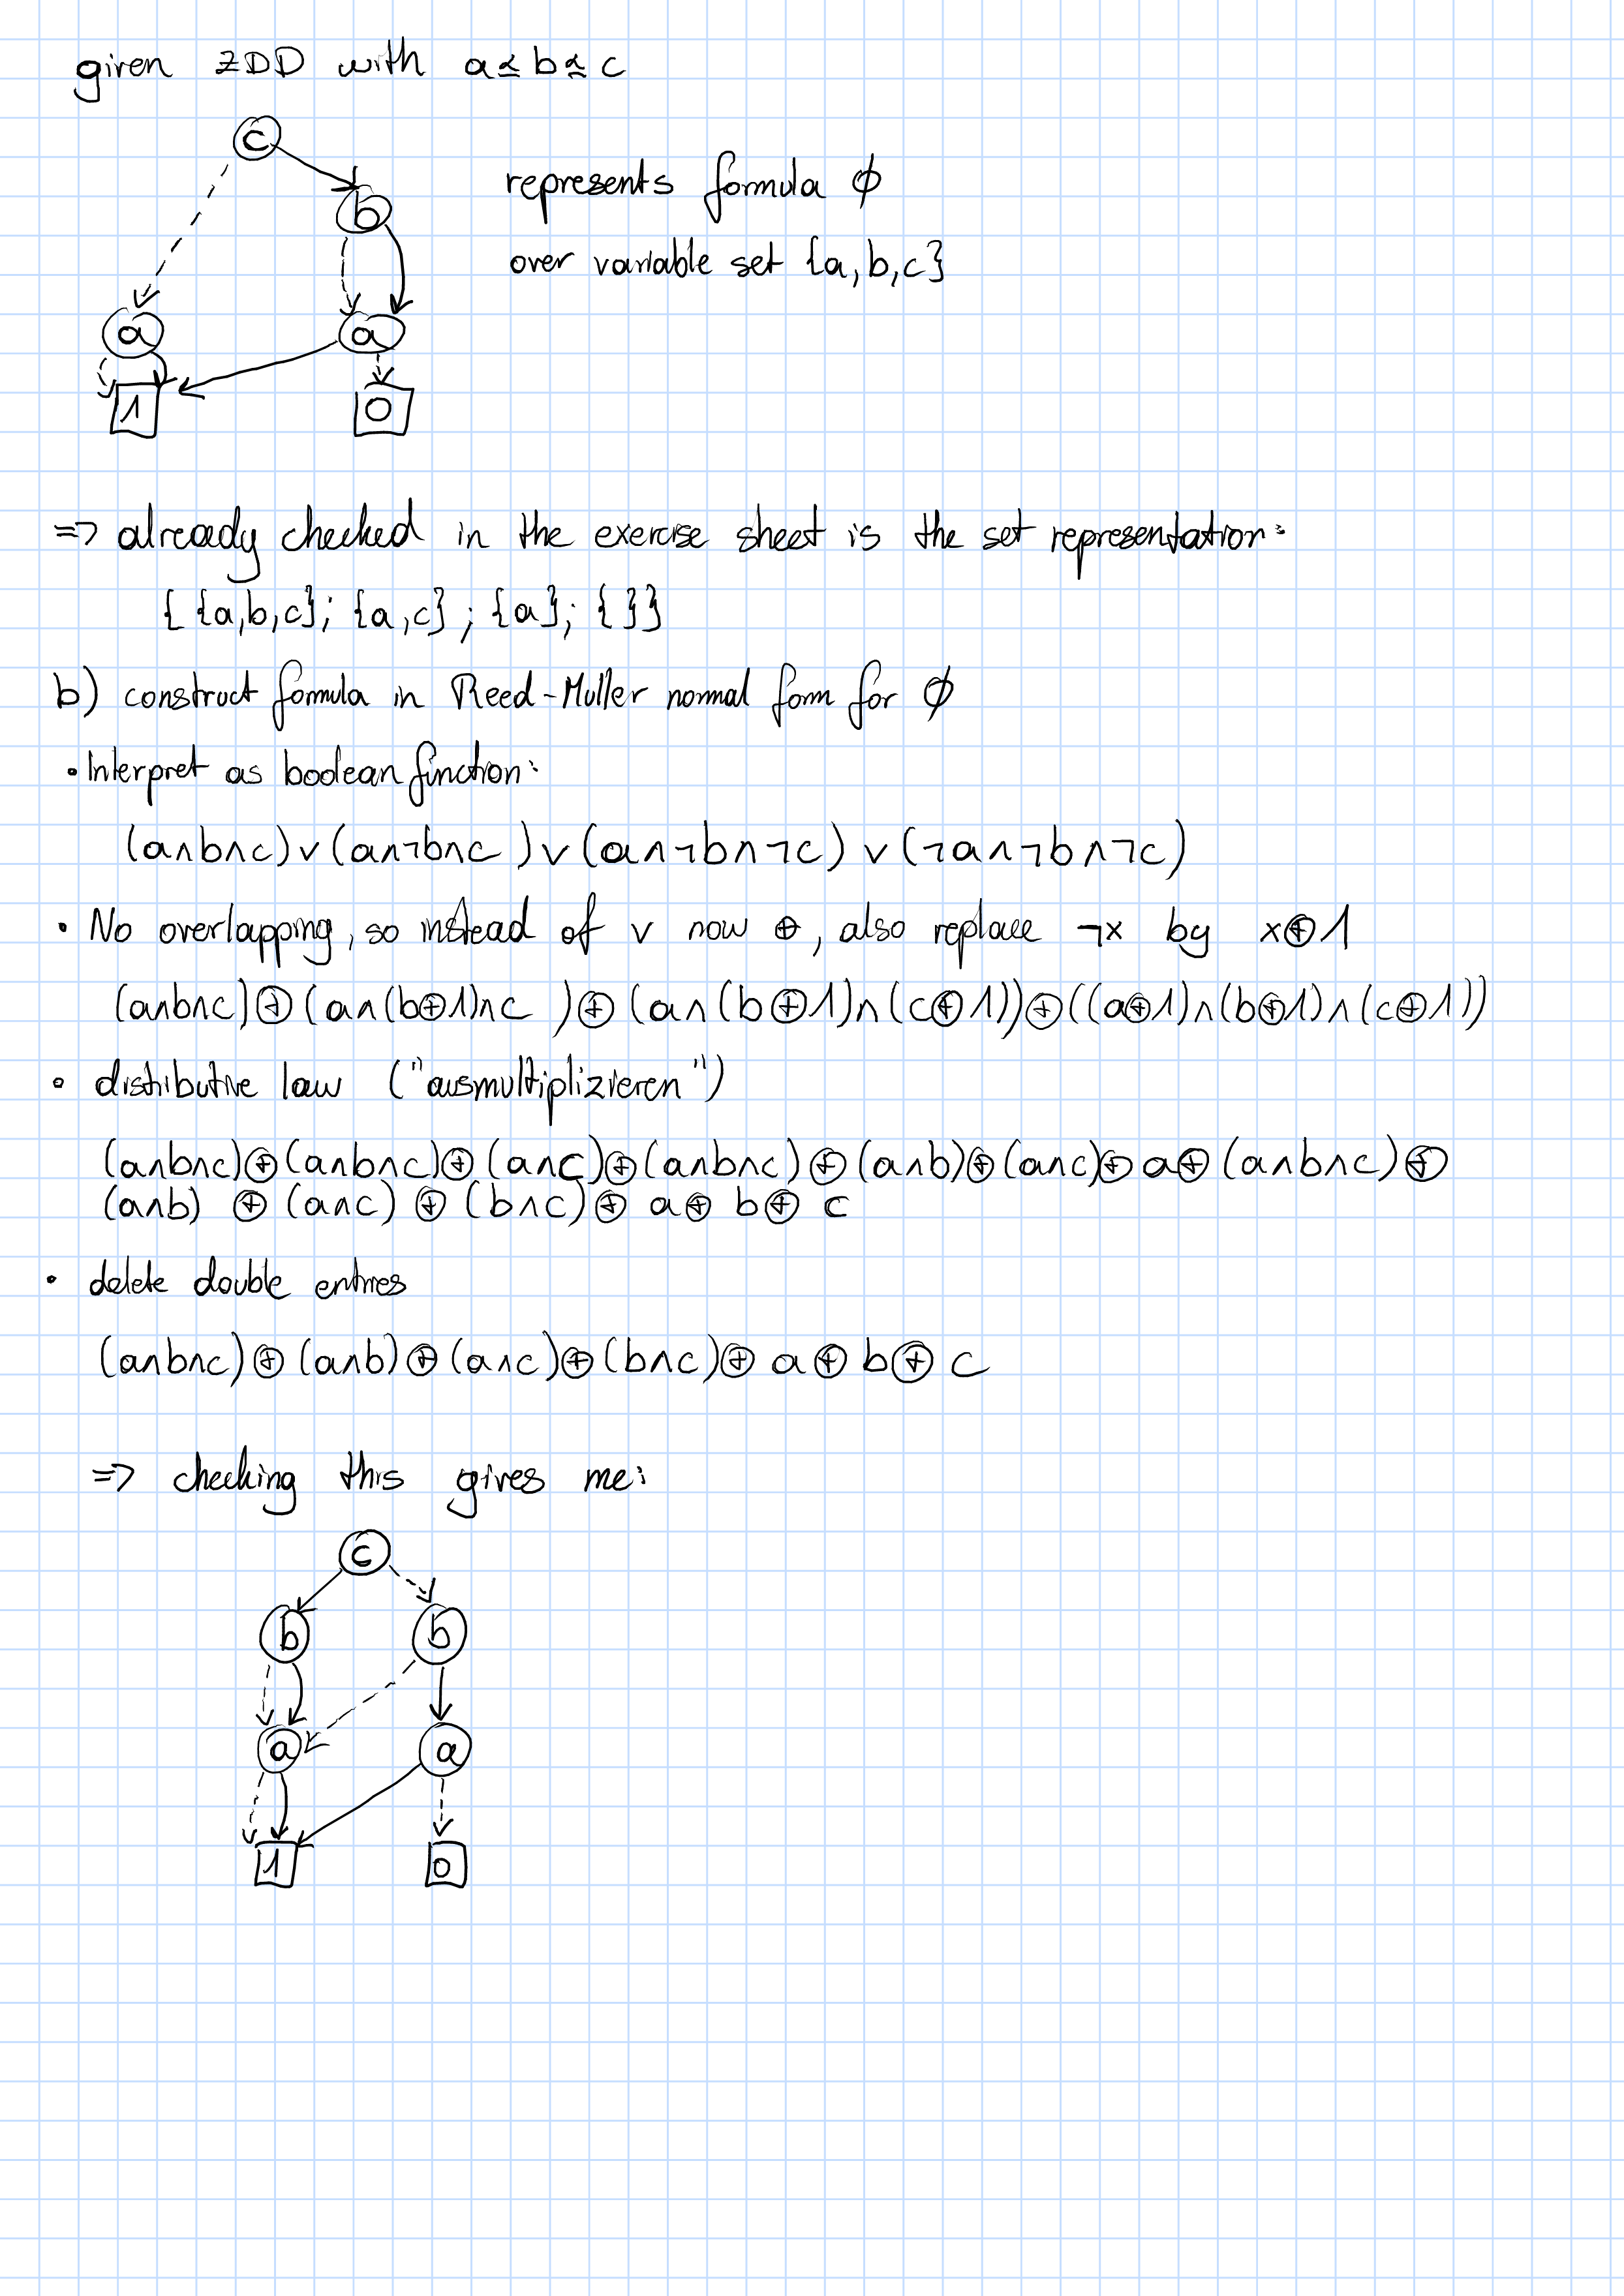 given ZDD with a ⪯ b ⪯ c
c
b
a a
1 0
represents formula ϕ
over variable set {a, b, c}
=> already checked in the exercise sheet is the set representation:
{ {a,b,c}; {a,c} ; {a}; { }}
b) construct formula in Reed-Muller normal form for ϕ
• Interpret as boolean function:
(a∧b∧c) ∨ (a∧¬b∧c ) ∨ (a∧¬b∧¬c) ∨ (¬a∧¬b∧¬c)
• No overlapping, so instead of ∨ now ⊕, also replace ¬x by x⊕1
(a∧b∧c)⊕(a∧(b⊕1)∧c )⊕(a∧(b⊕1)∧(c⊕1))⊕((a⊕1)∧(b⊕1)∧(c⊕1))
• distributive law ("ausmultiplizieren")
(a∧b∧c)⊕(a∧b∧c)⊕(a∧c)⊕(a∧b∧c)⊕(a∧b)⊕(a∧c)⊕a⊕(a∧b∧c)⊕
(a∧b) ⊕ (a∧c) ⊕ (b∧c)⊕ a⊕ b⊕ c
• delete double entries
(a∧b∧c)⊕(a∧b)⊕(a∧c)⊕(b∧c)⊕ a⊕b⊕ c
=> checking this gives me:
c
b b
a a
1 0